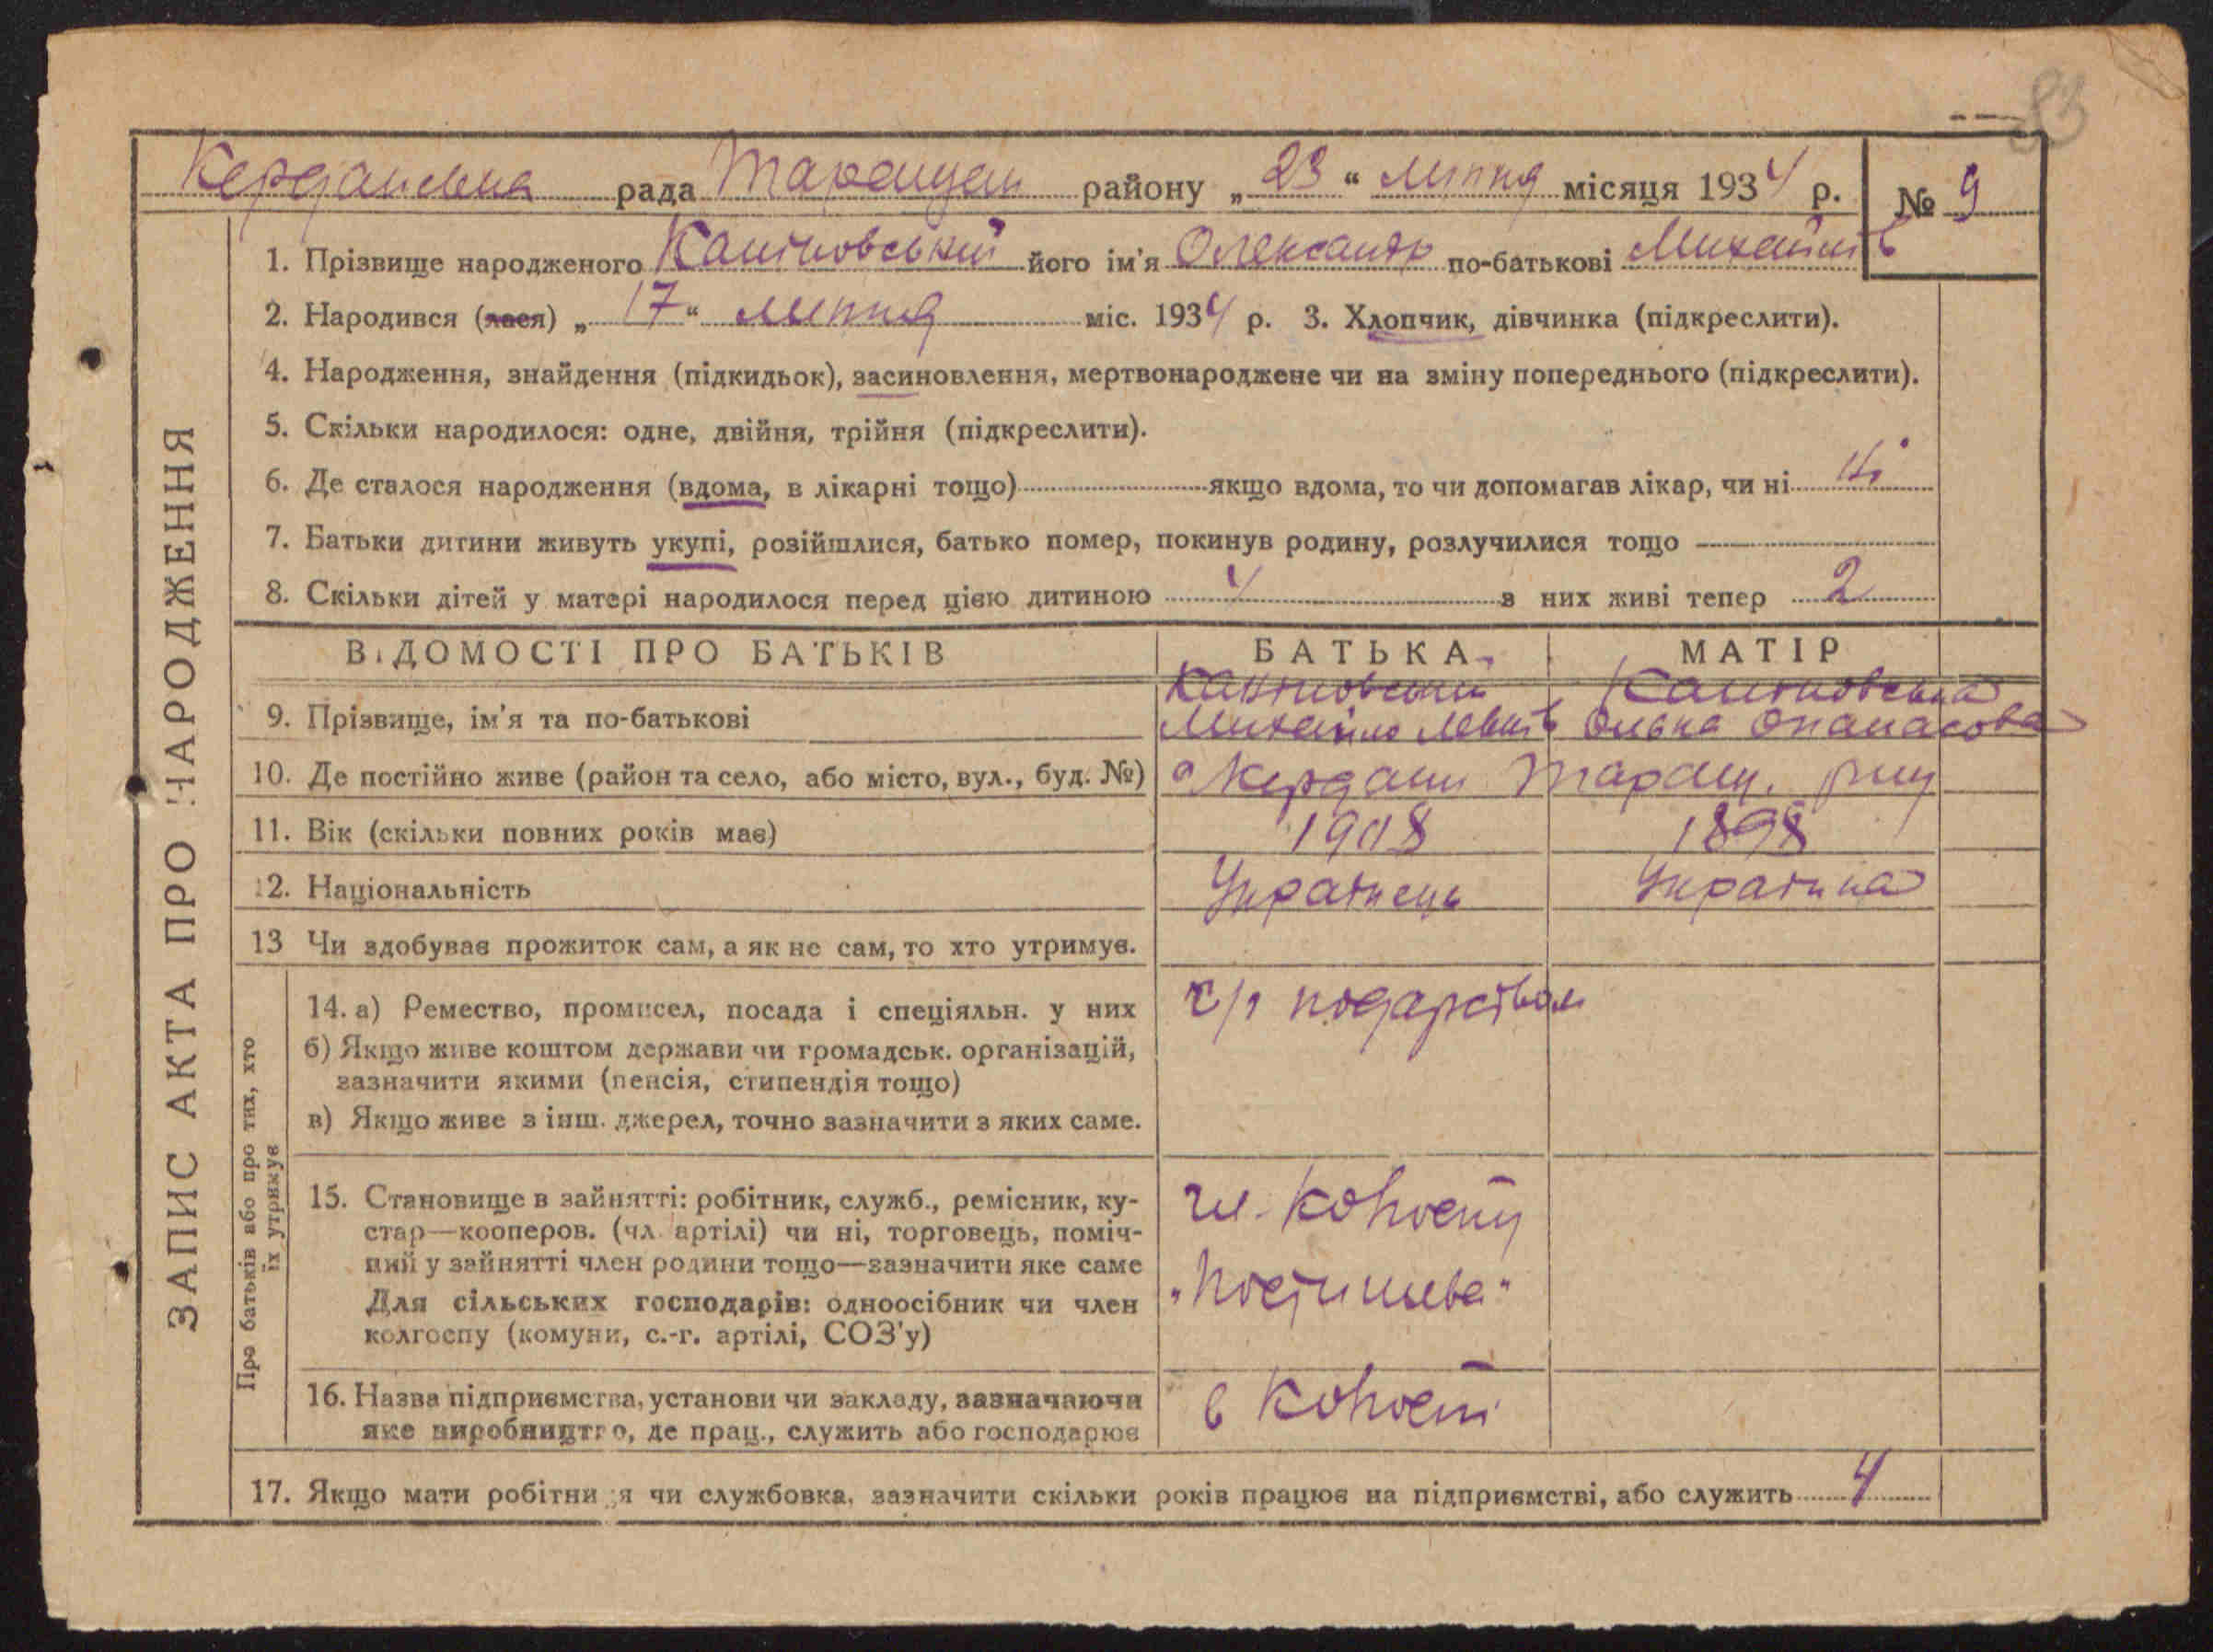 83
Керданівська рада Таращан району „23“ липня місяця 1934 р. № 9
1. Прізвище народженого Каніновський його ім'я Олександр по-батькові Михайлів
2. Народився (лася) „17“ липня міс. 1934 р. 3. Хлопчик, дівчинка (підкреслити).
4. Народження, знайдення (підкидьок), засиновлення, мертвонароджене чи на зміну попереднього (підкреслити).
5. Скільки народилося: одне, двійня, трійня (підкреслити).
6. Де сталося народження (вдома, в лікарні тощо) якщо вдома, то чи допомагав лікар, чи ні ні
7. Батьки дитини живуть укупі, розійшлися, батько помер, покинув родину, розлучилися тощо
8. Скільки дітей у матері народилося перед цією дитиною 4 з них живі тепер 2
ВІДОМОСТІ ПРО БАТЬКІВ БАТЬКА МАТІР
9. Прізвище, ім'я та по-батькові Каніновський Михайло Каніновська Ольга Опанасова
10. Де постійно живе (район та село, або місто, вул., буд. №) Кердани Таращ.
11. Вік (скільки повних років має) 1908 1898
12. Національність Українець Українка
13 Чи здобуває прожиток сам, а як не сам, то хто утримує.
14. а) Ремество, промисел, посада і спеціяльн. у них
б) Якщо живе коштом держави чи громадськ. організацій,
зазначити якими (пенсія, стипендія тощо)
в) Якщо живе з інш. джерел, точно зазначити з яких саме.
15. Становище в зайнятті: робітник, служб., ремісник, ку-
стар—кооперов. (чл. артілі) чи ні, торговець, поміч-
ний у зайнятті член родини тощо—зазначити яке саме
Для сільських господарів: одноосібник чи член
колгоспу (комуни, с.-г. артілі, СОЗ'у)
чл. колгоспу
„Постишева“
16. Назва підприємства, установи чи закладу, зазначаючи
яке виробництво, де прац., служить або господарює
в колгоспі
17. Якщо мати робітниця чи службовка, зазначити скільки років працює на підприємстві, або служить 4
ЗАПИС АКТА ПРО НАРОДЖЕННЯ
Про батьків або про тих, хто
їх утримує